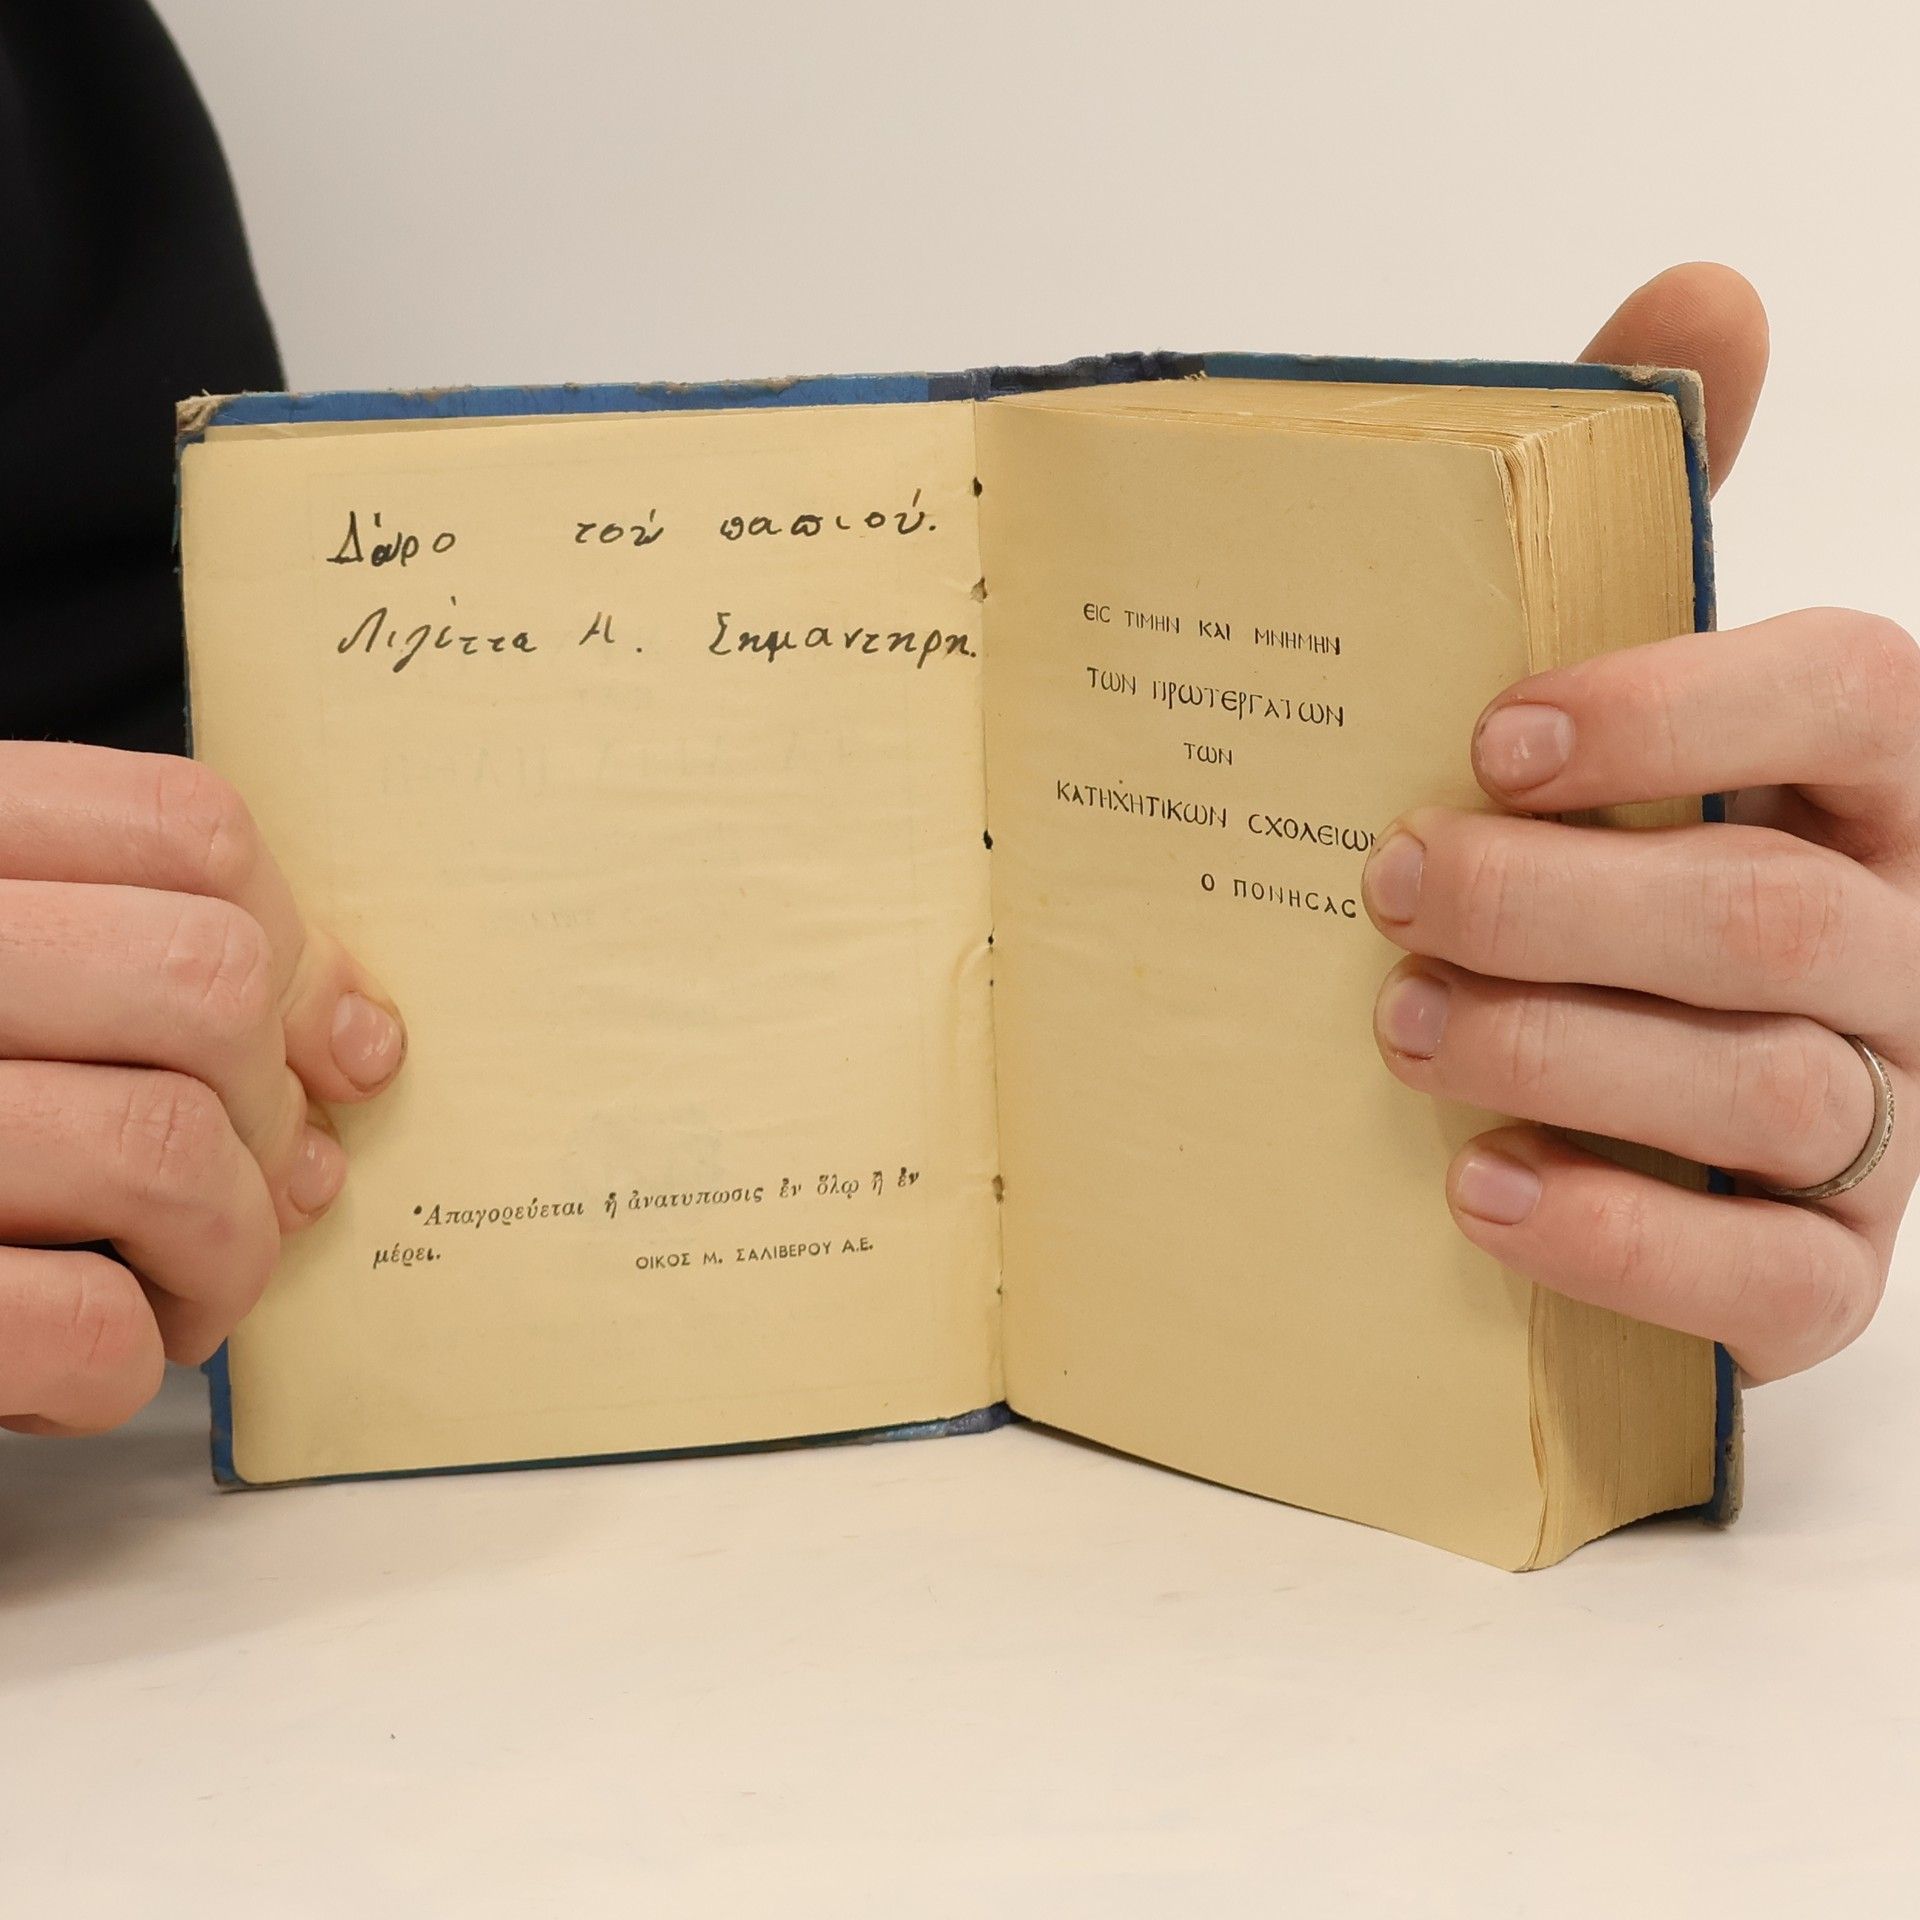 Δώρο τού παπιού.
Λιλίττα Μ. Σημαντηρη.
Ἀπαγορεύεται ἡ ἀνατυπωσις ἐν ὅλῳ ἢ ἐν
μέρει.
ΟΙΚΟΣ Μ. ΣΑΛΙΒΕΡΟΥ Α.Ε.
ΕΙϹ ΤΙΜΗΝ ΚΑΙ ΜΝΗΜΗΝ
ΤΩΝ ΠΡΩΤΕΡΓΑΤΩΝ
ΤΩΝ
ΚΑΤΗΧΗΤΙΚΩΝ ϹΧΟΛΕΙΩΝ
Ο ΠΟΝΗϹΑϹ